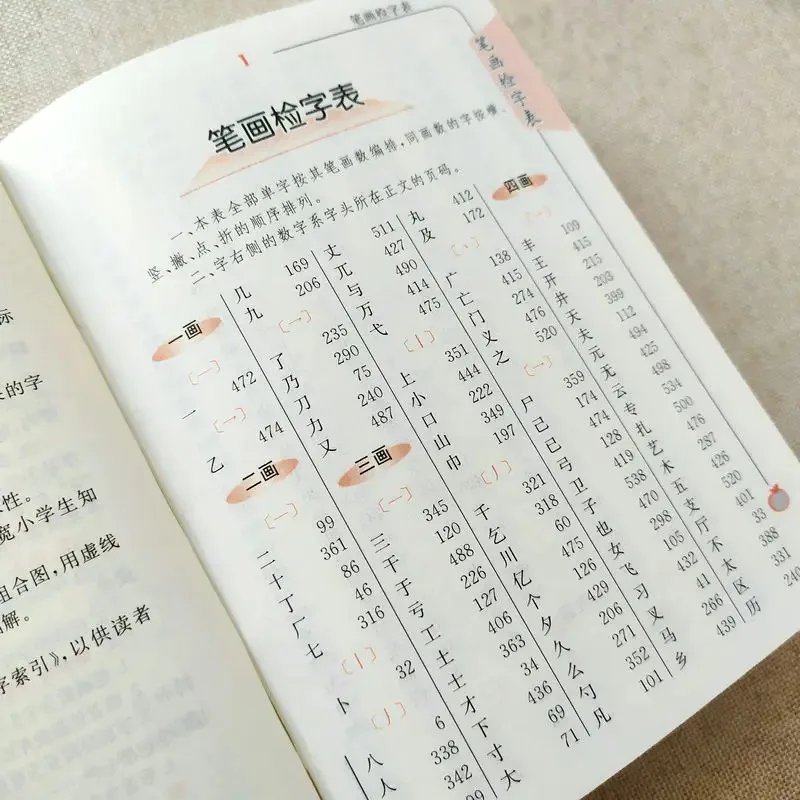 标
来的字
性。
宽小学生知
组合图,用虚线
解。
字索引》,以供读者
笔画检字表
1
笔画检字表
笔画检字表
一、本表全部单字按其笔画数编排,同画数的字按横、
竖、撇、点、折的顺序排列。
二、字右侧的数字系字头所在正文的页码。
一画
〔一〕
一 472
〔一〕
乙 474
二画
〔一〕
二 99
十 361
丁 86
厂 46
七 316
〔丨〕
卜 32
〔丿〕
八 6
人 338
342
几 169
九 206
〔一〕
了 235
乃 290
刀 75
力 240
又 487
三画
〔一〕
三 345
干 120
于 488
亏 226
工 127
土 406
士 363
才 34
下 436
寸 69
大 71
丈 511
兀 427
与 490
万 414
弋 475
〔丨〕
上 351
小 444
口 222
山 349
巾 197
〔丿〕
千 321
乞 318
川 60
亿 475
个 126
夕 429
久 206
么 271
勺 352
凡 101
丸 412
及 172
〔丶〕
广 138
亡 415
门 274
义 476
之 520
〔一〕
尸 359
己 174
已 474
弓 128
卫 419
子 538
也 470
女 298
飞 105
习 432
叉 41
马 266
乡 439
四画
〔一〕
丰 109
王 415
开 215
井 203
天 399
夫 112
元 494
无 425
云 498
专 534
扎 500
艺 476
木 287
五 426
支 520
厅 401
不 33
太 388
区 331
历 240